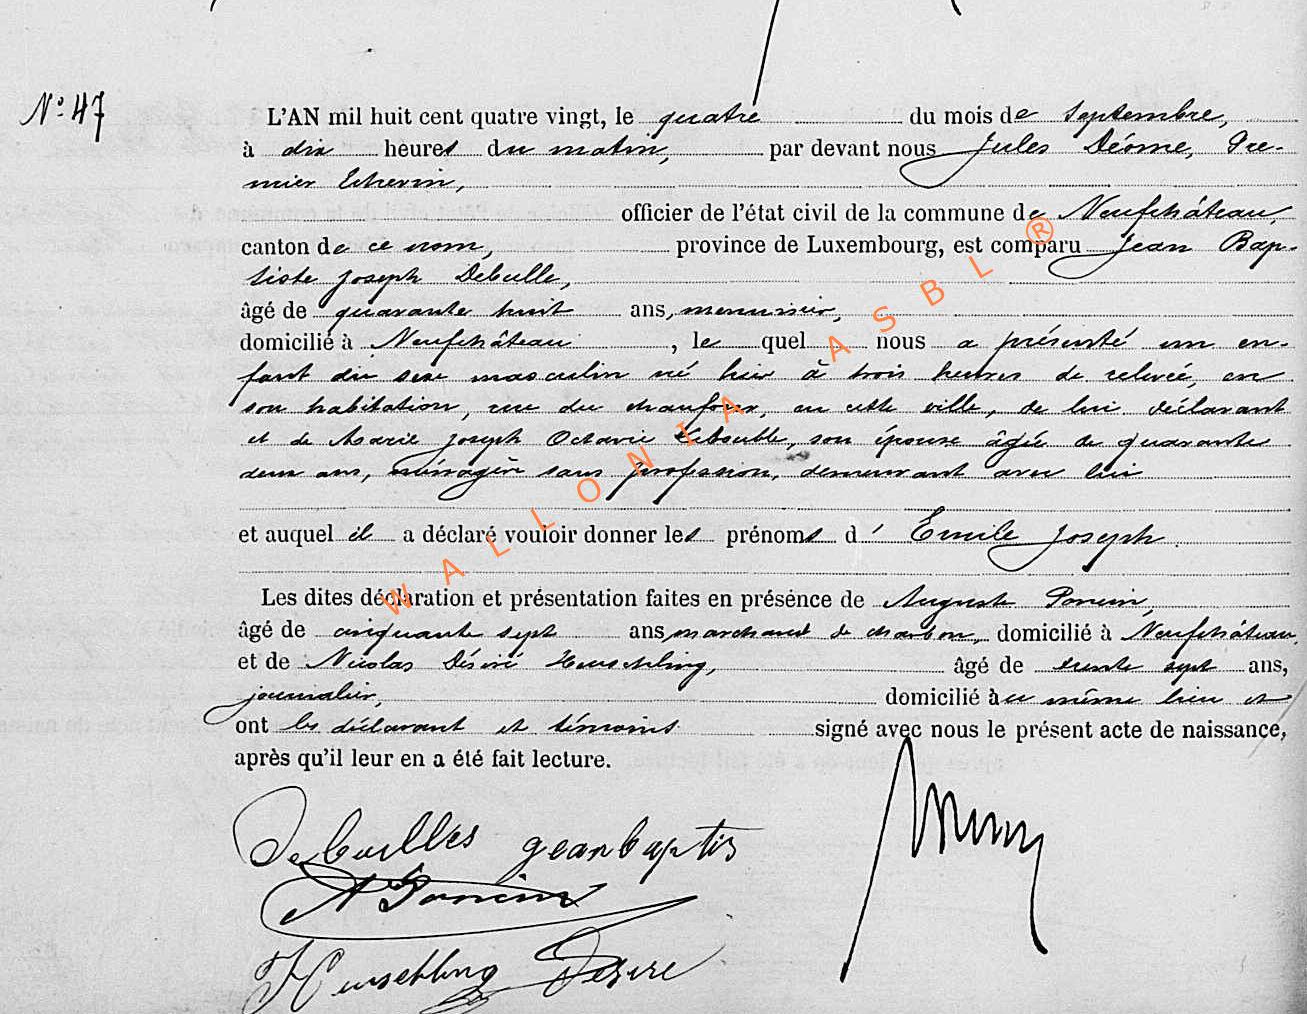 N° 47
L'AN mil huit cent quatre vingt, le quatre du mois de Septembre,
à dix heures du matin, par devant nous Jules Déome, Pre-
mier Echevin,
officier de l'état civil de la commune de Neufchâteau,
canton de ce nom, province de Luxembourg, est comparu Jean Bap-
tiste Joseph Debulle,
âgé de quarante huit ans, menuisier,
domicilié à Neufchâteau, lequel nous a présenté un en-
fant du sexe masculin né hier à trois heures de relevée, en
son habitation, rue du chaufour, en cette ville, de lui déclarant
et de Marie Joseph Octavie, son épouse âgée de quarante
deux ans, ménagère sans profession, demeurant avec lui
et auquel il a déclaré vouloir donner les prénoms d' Emile Joseph.
Les dites déclaration et présentation faites en présence de Auguste Poncin,
âgé de cinquante sept ans, marchand de charbon, domicilié à Neufchâteau,
et de Nicolas Désiré Heuschling, âgé de trente sept ans,
journalier, domicilié au même lieu et
ont les déclarant et témoins signé avec nous le présent acte de naissance,
après qu'il leur en a été fait lecture.
Debulles geanbaptis
A Poncin
Heuschling Desire
WALLONIA ASBL ®